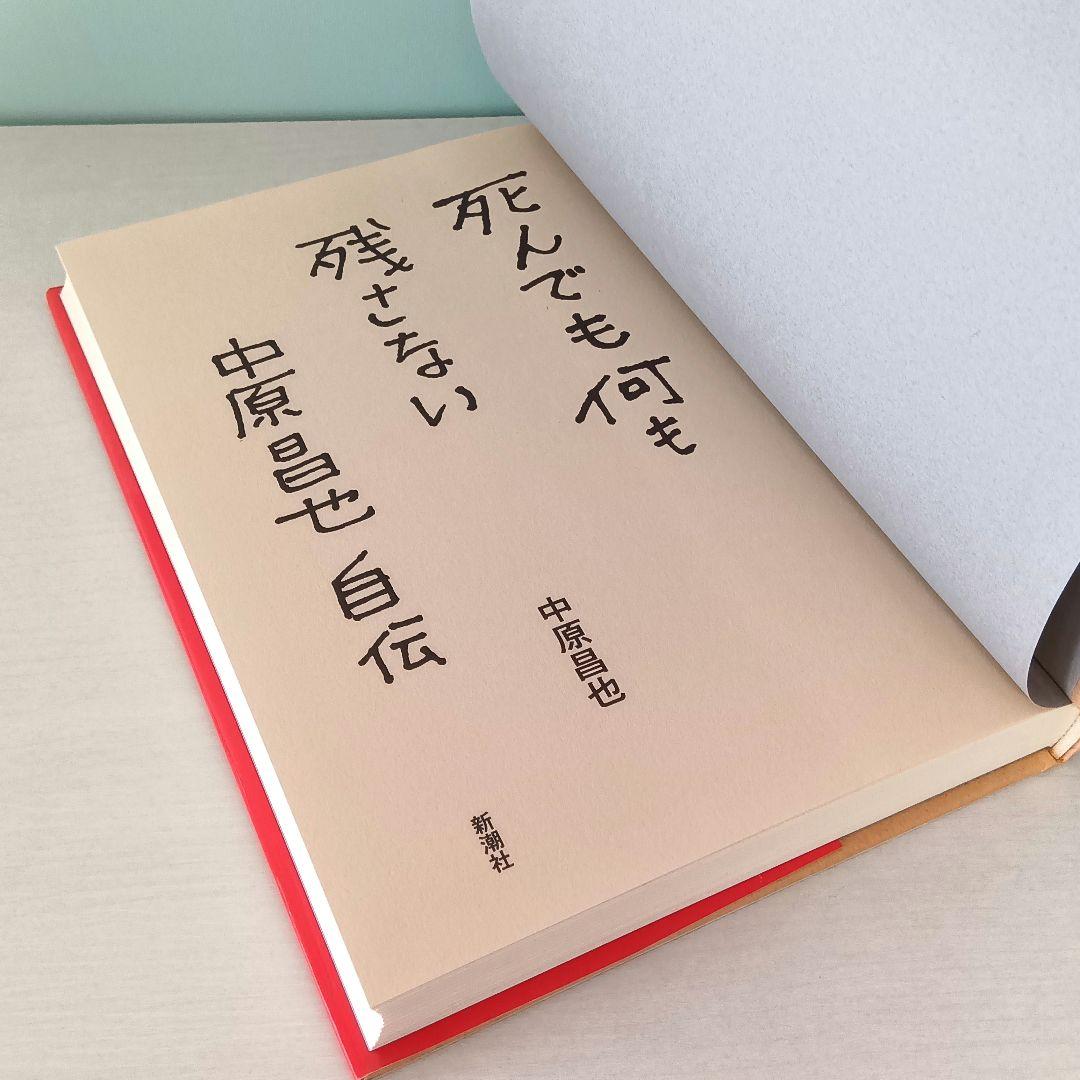 死んでも何も
残さない
中原昌也自伝
中原昌也
新潮社